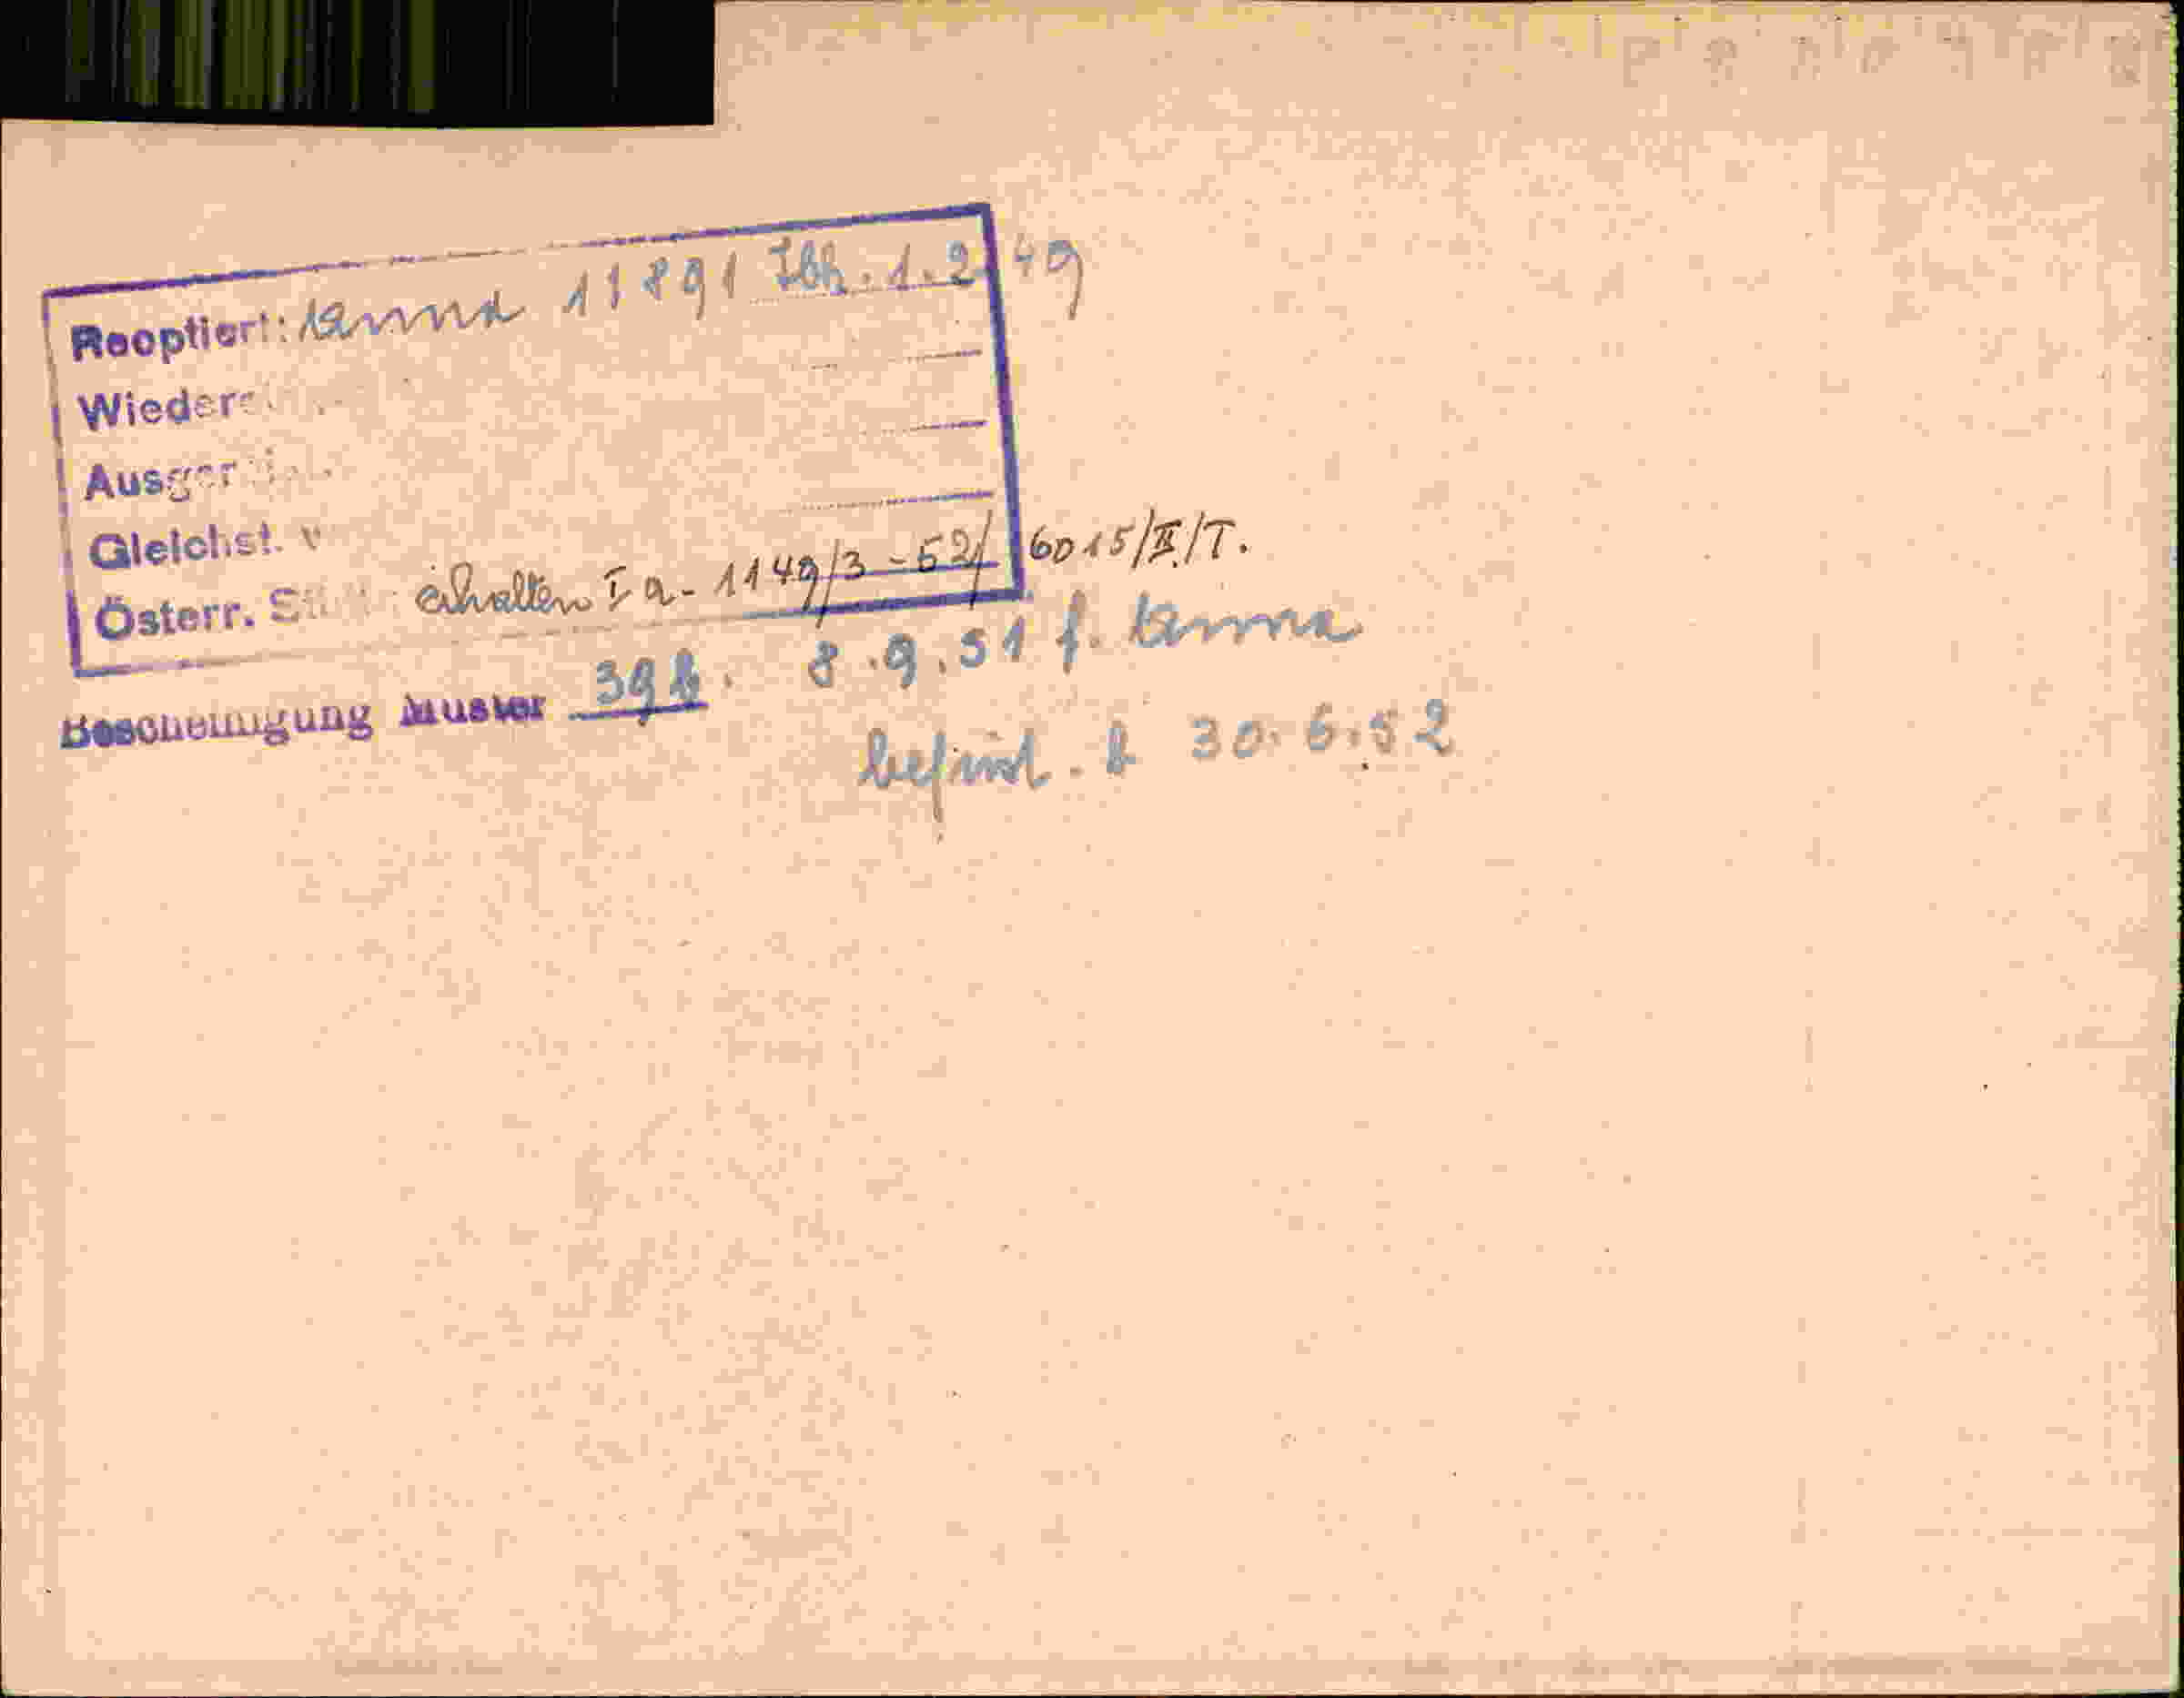 Reoptiert: Anna 11891 Ibk. 1.2.49
Wieder
Ausger
Gleichst. v
Österr. St erhalten I a - 1149/3 - 52/ 6015/II/T.
Bescheinigung Muster 39b. 8.9.51 f. Anna
befrist. b 30.6.52